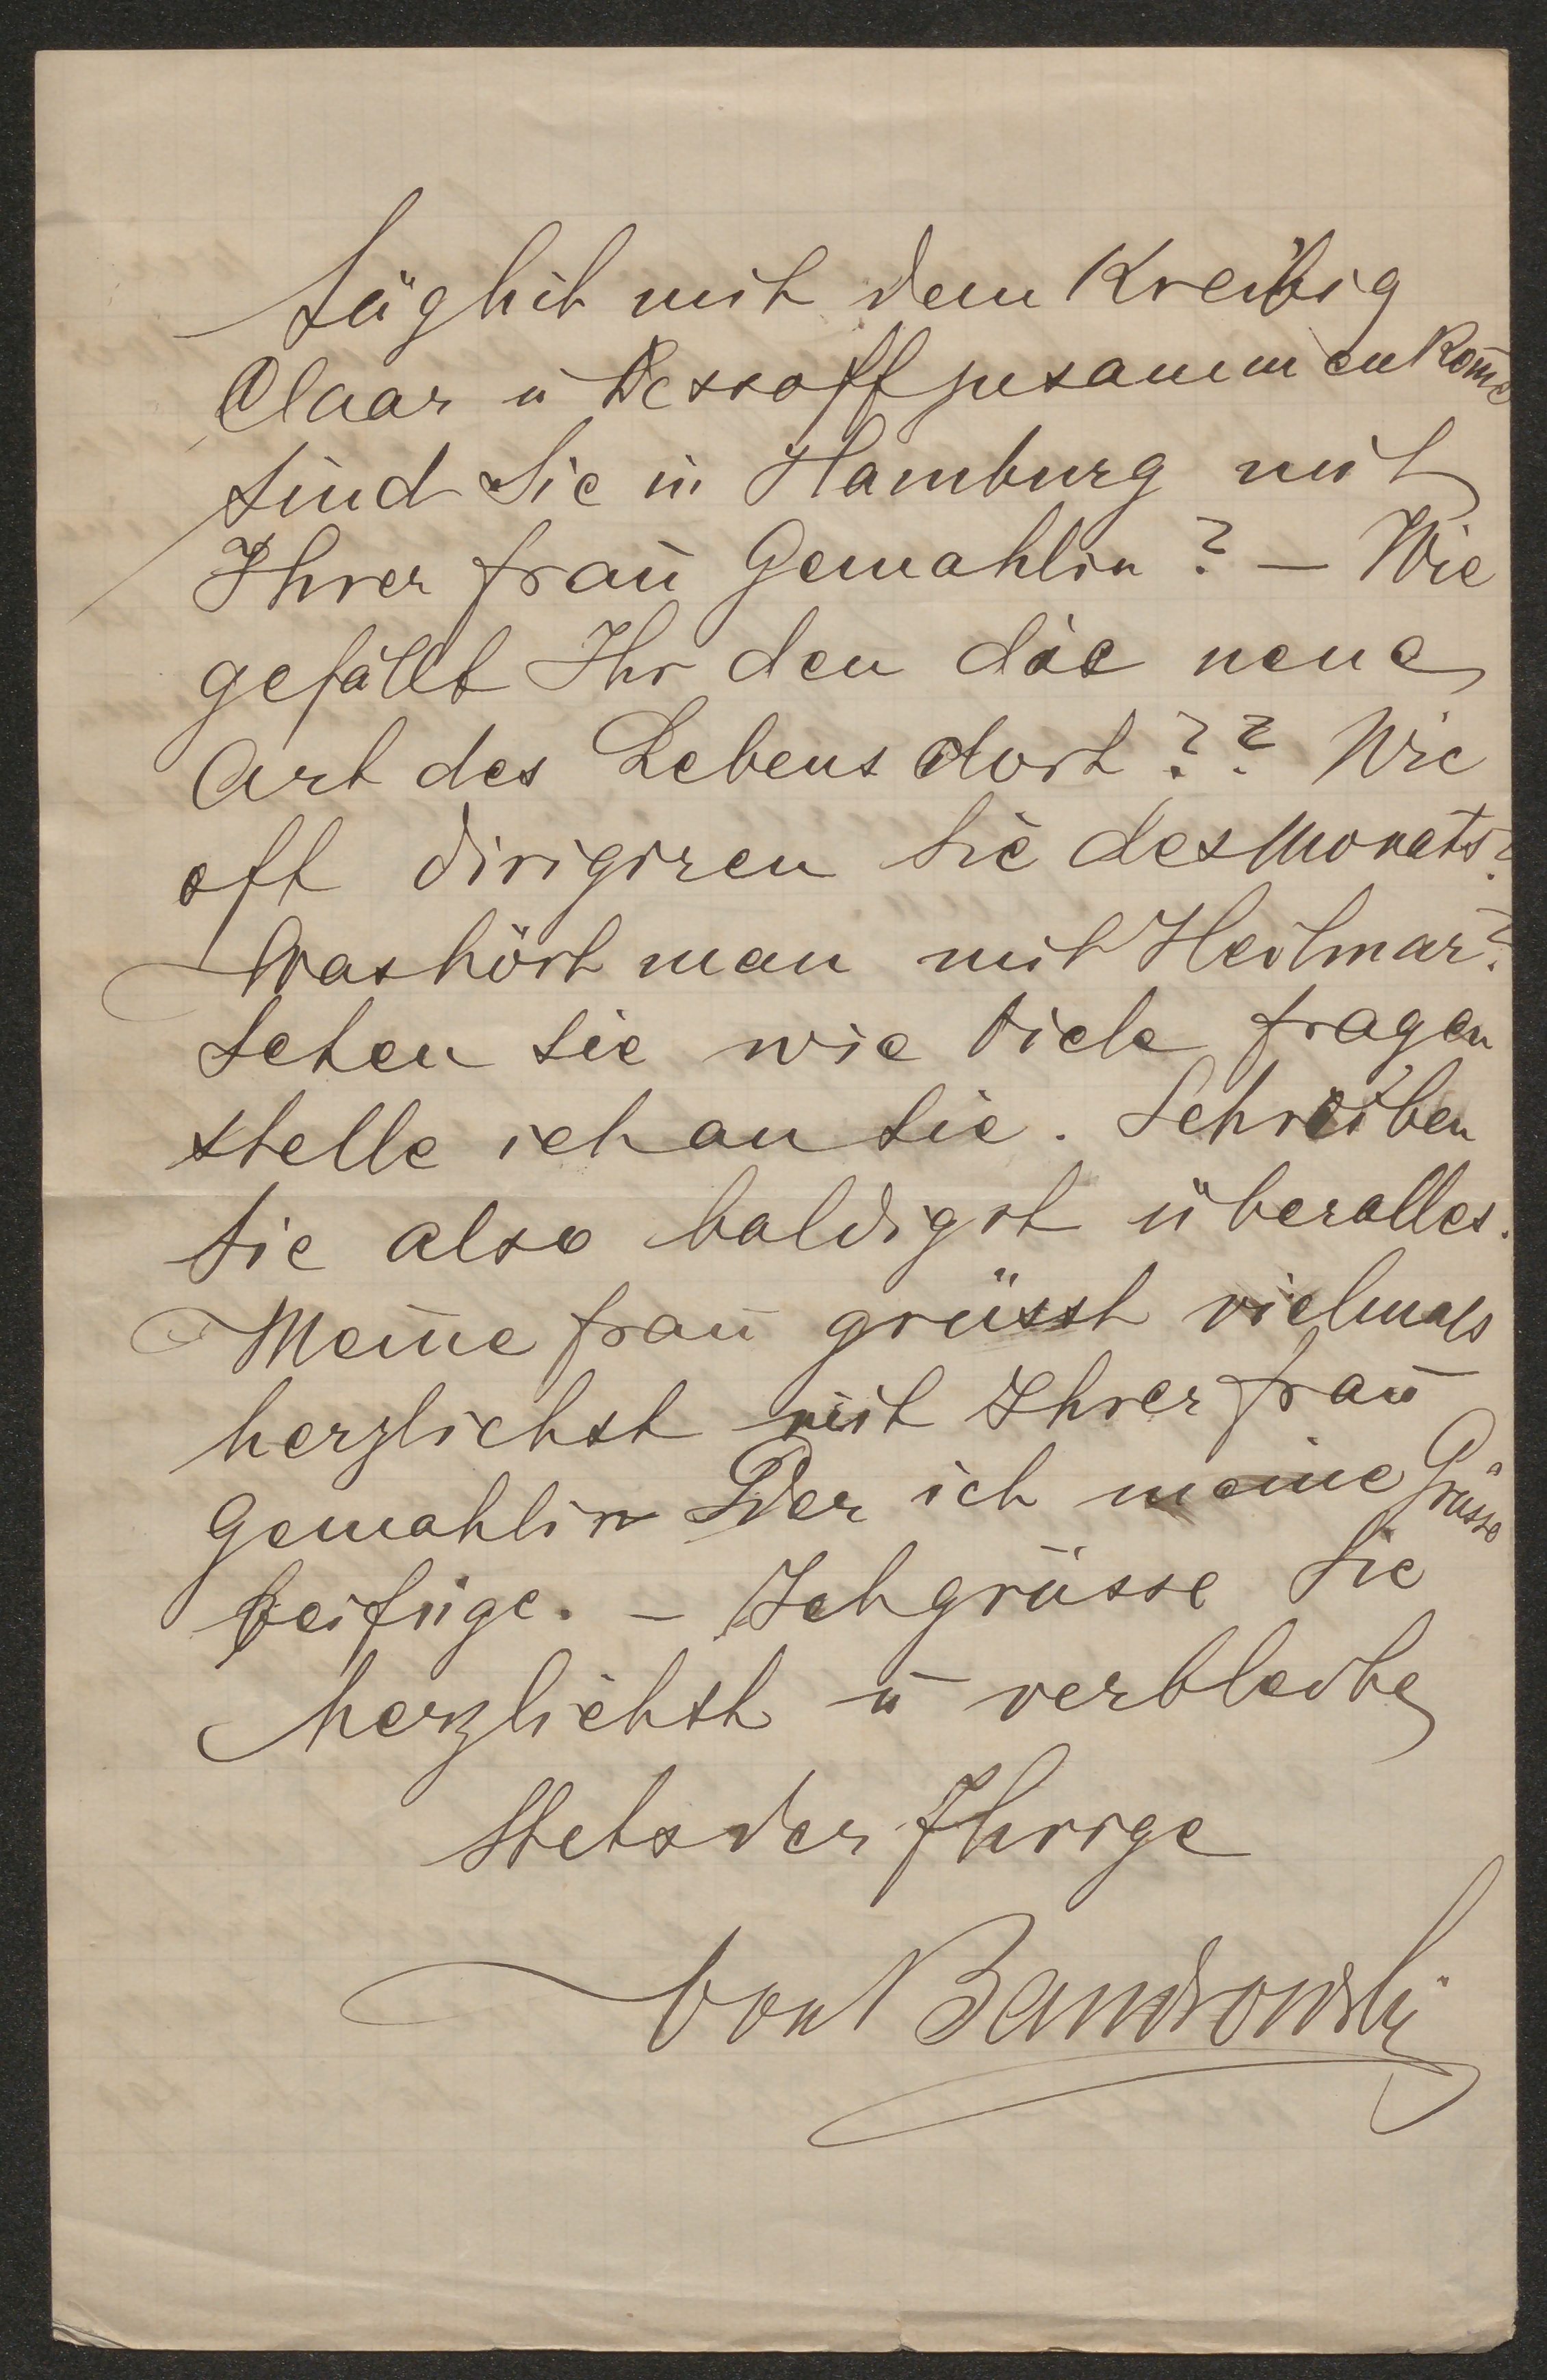 täglich mit dem Kreibig
Claar ū Dessoff zusammenkom̄e
Sind Sie in Hamburg mit
Ihrer Fraū Gemahlin? – Wie
gefällt Ihr den die neue
Art des Lebens dort?? Wie
oft dirigiren Sie des Monats?
Was hört man mit Heilmar?
Sehen Sie wie viele Fragen
stelle ich an Sie. Schreiben
Sie also baldigst über alles.
Meine Fraū grüsst vielmals
herzlichst mit Ihrer Fraū
Gemahlin Der ich meine Grüsse
beifüge. – Ich grüsse Sie
herzlichst ū verbleibe
Stets der Ihrige
von Bandrowski